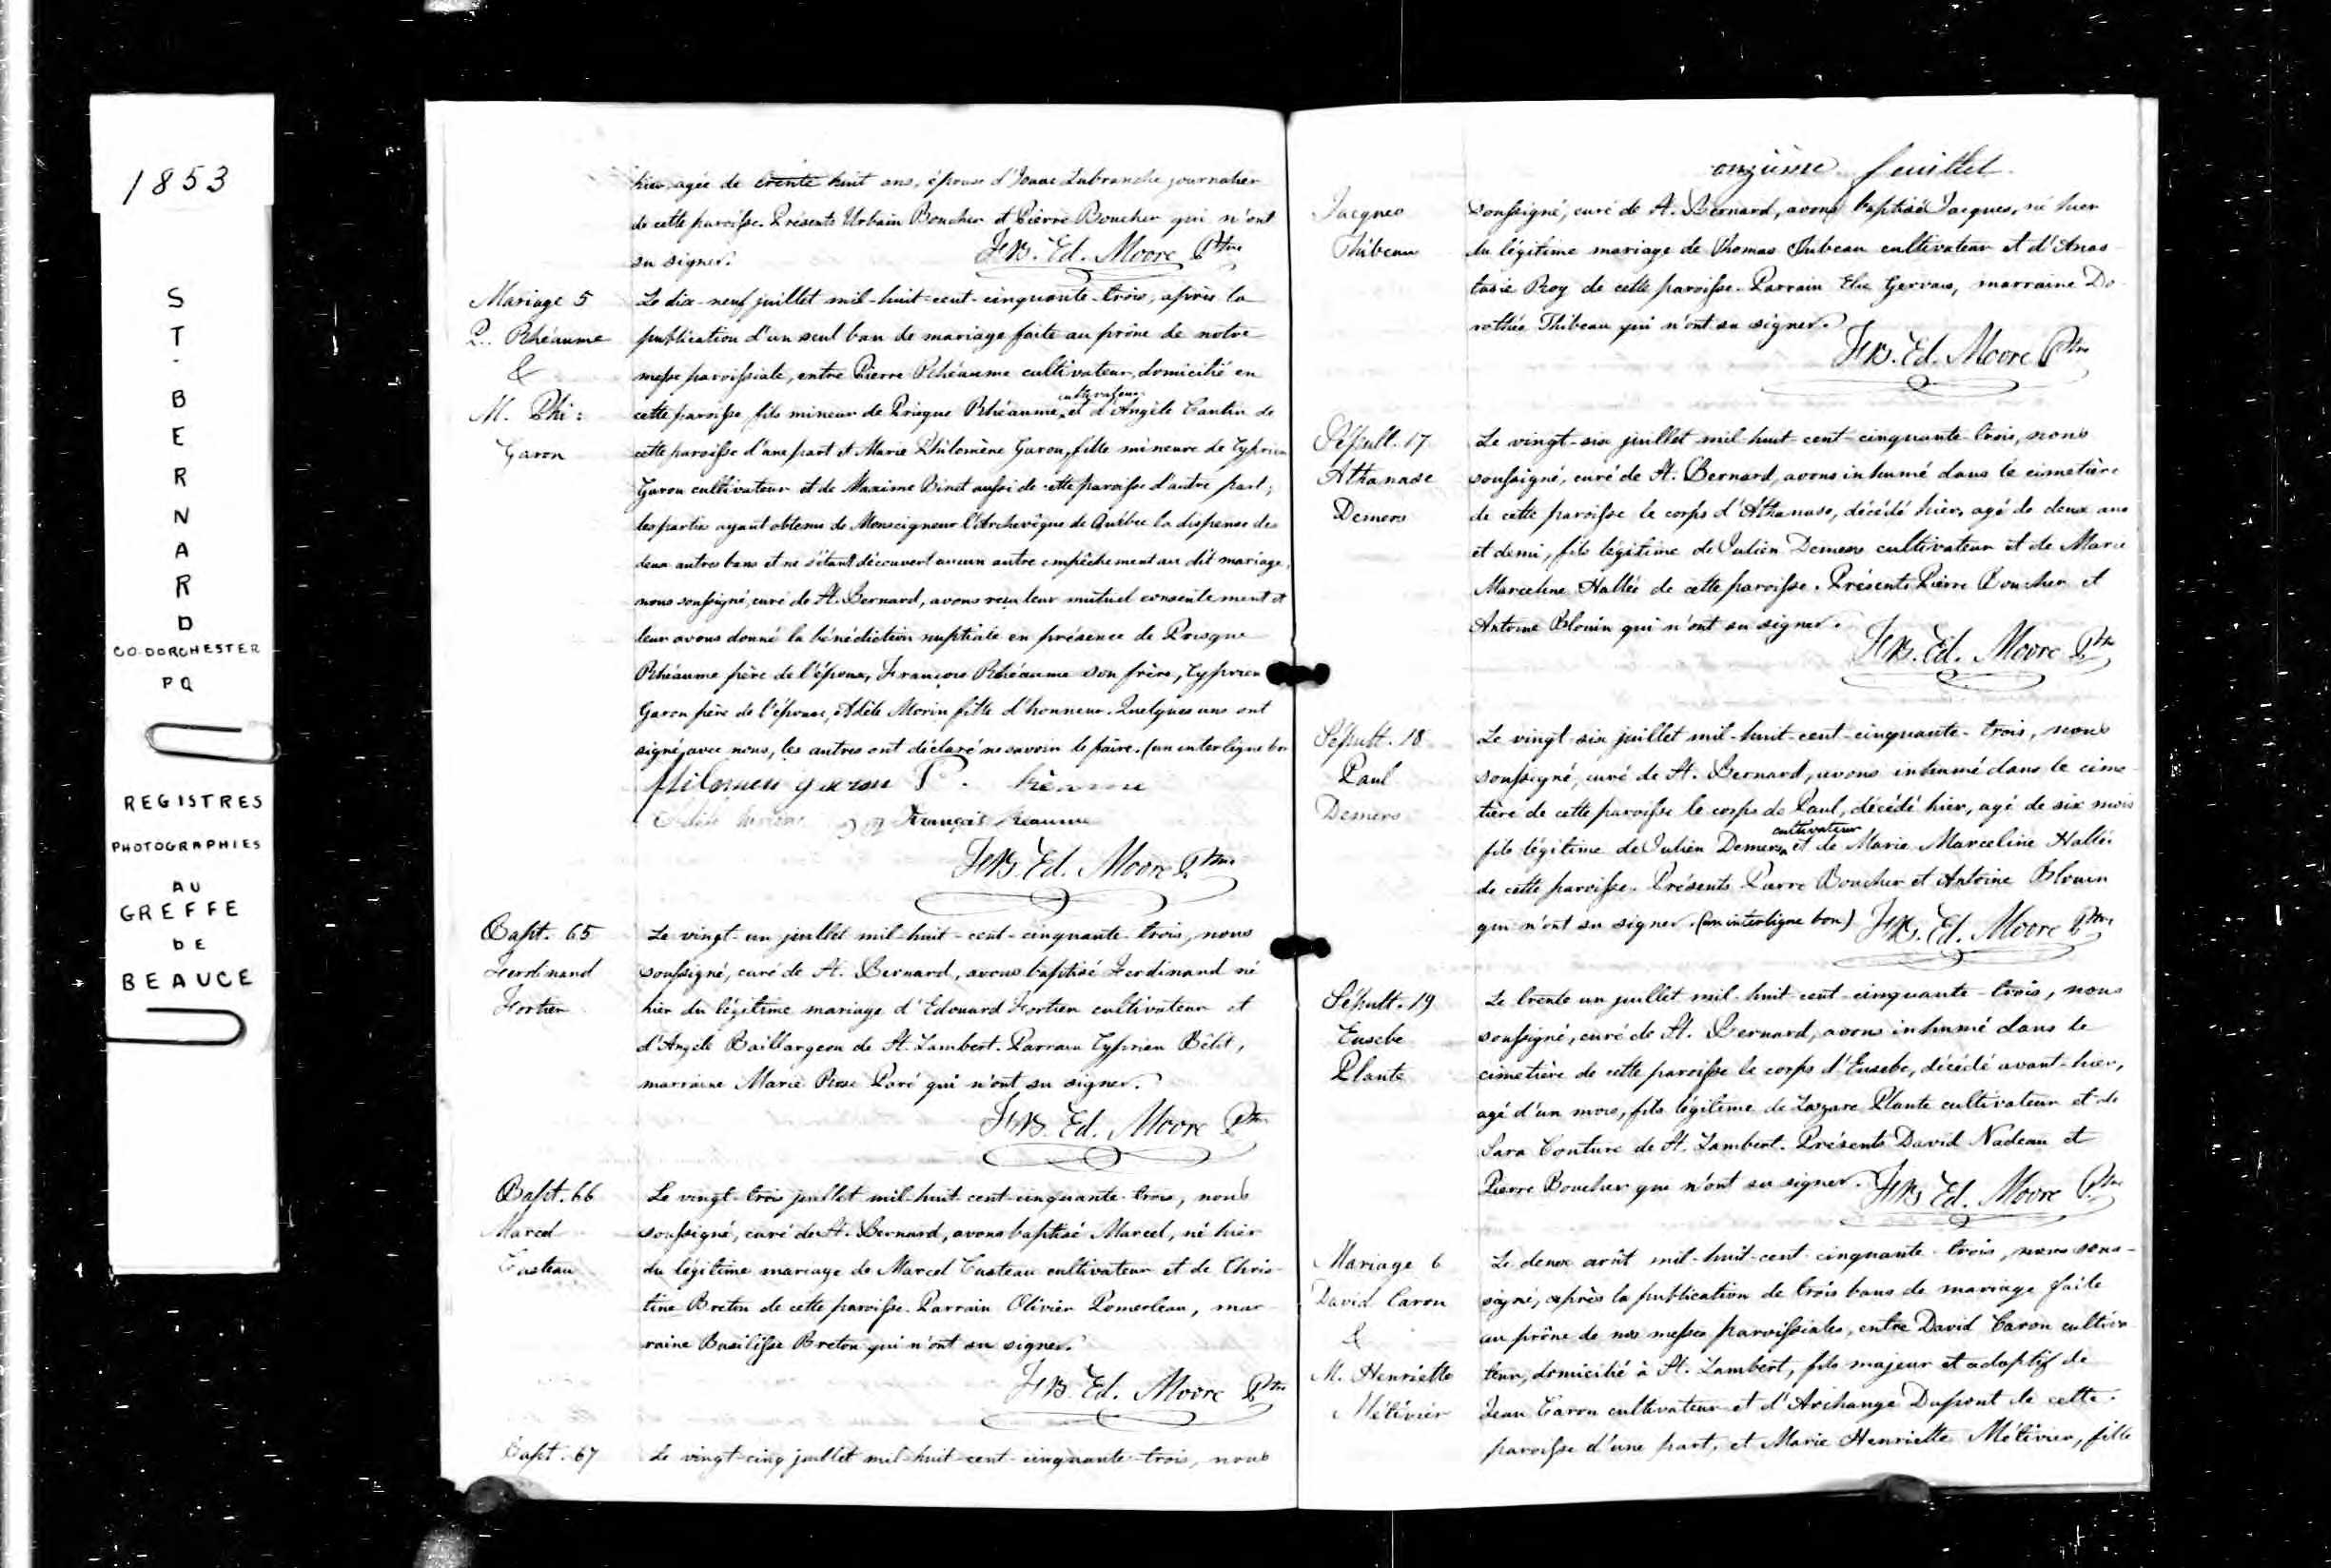 1853
ST. BERNARD
CO. DORCHESTER
PQ
REGISTRES
PHOTOGRAPHIES
AU
GREFFE
DE
BEAUCE
hier, agée de trente huit ans, épouse d'Isaac Labranche journalier
de cette paroisse. Présents Urbain Boucher et Pierre Boucher qui n'ont
su signer.
Jn B. Ed. Moore Ptre
Mariage 5
P. Rhéaume
&
M. Phi:
Garon
Le dix-neuf juillet mil-huit-cent-cinquante-trois, après la
publication d'un seul ban de mariage faite au prône de notre
messe paroissiale, entre Pierre Rhéaume cultivateur, domicilié en
cette paroisse, fils mineur de Prisque Rhéaume, cultivateur et d'Angèle Cantin de
cette paroisse d'une part et Marie Philomène Garon, fille mineure de Cyprien
Garon cultivateur et de Maxime Binet aussi de cette paroisse d'autre part;
les parties ayant obtenu de Monseigneur l'Archevêque de Québec la dispense des
deux autres bans et ne s'étant découvert aucun autre empêchement au dit mariage,
nous soussigné, curé de St. Bernard, avons reçu leur mutuel consentement et
leur avons donné la bénédiction nuptiale en présence de Prisque
Rhéaume père de l'époux, François Rhéaume son frère, Cyprien
Garon père de l'épouse, Adèle Morin fille d'honneur. Quelques uns ont
signé avec nous, les autres ont déclaré ne savoir le faire. (un interligne bon
filomen garon P. Rèaume
Adèle François Reaume
Jn B. Ed. Moore Ptre
Bapt. 65
Ferdinand
Fortier
Le vingt-un juillet mil-huit-cent-cinquante-trois, nous
soussigné, curé de St. Bernard, avons baptisé Ferdinand né
hier du légitime mariage d'Edouard Fortier cultivateur et
d'Angèle Baillargeon de St. Lambert. Parrain Cyprien Bélet,
marraine Marie Rose Paré qui n'ont su signer.
Jn B. Ed. Moore Ptre
Bapt. 66
Marcel
Custeau
Le vingt-trois juillet mil-huit-cent-cinquante-trois, nous
soussigné, curé de St. Bernard, avons baptisé Marcel, né hier
du légitime mariage de Marcel Custeau cultivateur et de Chris-
tine Breton de cette paroisse. Parrain Olivier Pomerleau, mar-
raine Basilisse Breton qui n'ont su signer.
Jn B. Ed. Moore Ptre
Bapt. 67
Le vingt-cinq juillet mil-huit-cent-cinquante-trois, nous
onzième feuillet.
Jacques
Thibeau
soussigné, curé de St. Bernard, avons baptisé Jacques, né hier
du légitime mariage de Thomas Thibeau cultivateur et d'Anas-
tasie Roy de cette paroisse. Parrain Elie Gervais, marraine Do-
rothée Thibeau qui n'ont su signer.
Jn B. Ed. Moore Ptre
Sépult. 17
Athanase
Demers
Le vingt-six juillet mil-huit-cent-cinquante-trois, nous
soussigné, curé de St. Bernard, avons inhumé dans le cimetière
de cette paroisse le corps d'Athanase, décédé hier, agé de deux ans
et demi, fils légitime de Julien Demers cultivateur et de Marie
Marceline Hallée de cette paroisse. Présents Pierre Boucher et
Antoine Blouin qui n'ont su signer.
Jn B. Ed. Moore Ptre
Sépult. 18
Paul
Demers
Le vingt-six juillet mil-huit-cent-cinquante-trois, nous
soussigné, curé de St. Bernard, avons inhumé dans le cime-
tière de cette paroisse le corps de Paul, décédé hier, agé de six mois
fils légitime de Julien Demers, cultivateur et de Marie Marceline Hallée
de cette paroisse. Présents Pierre Boucher et Antoine Blouin
qui n'ont su signer. (un interligne bon) Jn B. Ed. Moore Ptre
Sépult. 19
Eusebe
Plante
Le trente un juillet mil-huit-cent-cinquante-trois, nous
soussigné, curé de St. Bernard, avons inhumé dans le
cimetière de cette paroisse le corps d'Eusebe, décédé avant-hier,
agé d'un mois, fils légitime de Lazare Plante cultivateur et de
Sara Couture de St. Lambert. Présents David Nadeau et
Pierre Boucher qui n'ont su signer. Jn B. Ed. Moore Ptre
Mariage 6
David Caron
&
M. Henriette
Métivier
Le deux août mil-huit-cent-cinquante-trois, nous sous-
signé, après la publication de trois bans de mariage faite
au prône de nos messes paroissiales, entre David Caron cultiva-
teur, domicilié à St. Lambert, fils majeur et adoptif de
Jean Caron cultivateur et d'Archange Dupont de cette
paroisse d'une part, et Marie Henriette Métivier, fille